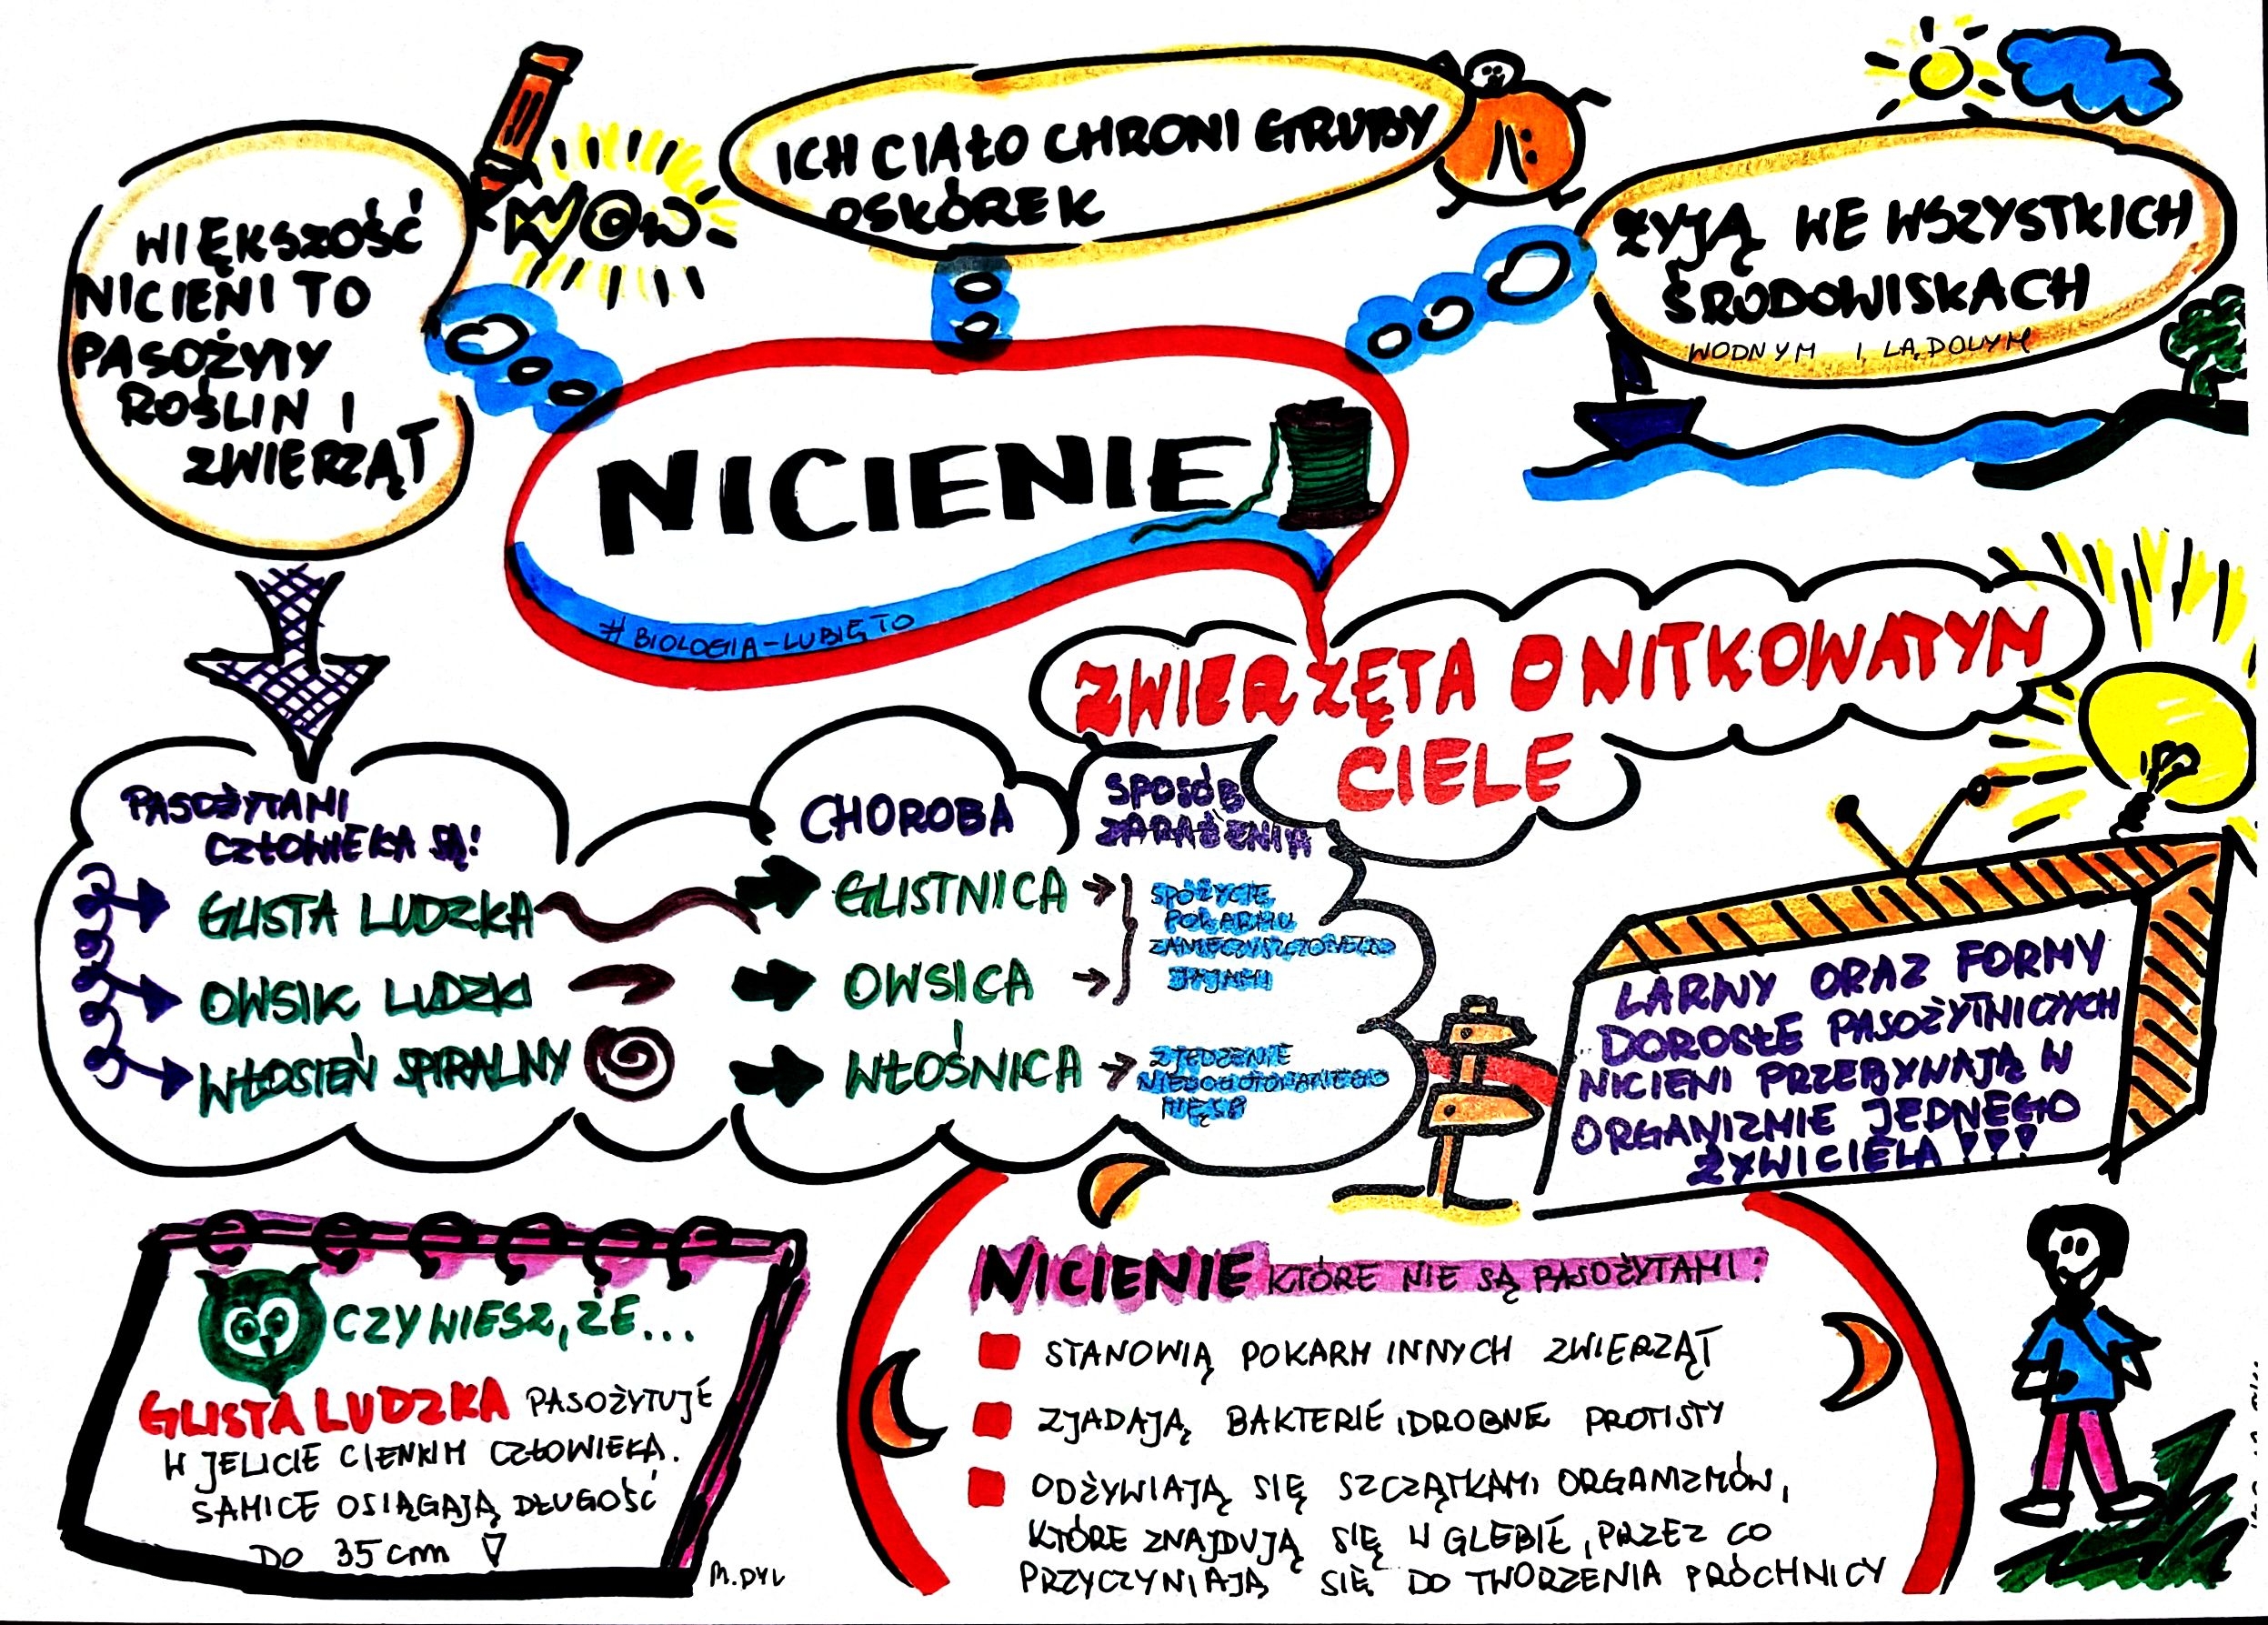 WIĘKSZOŚĆ
NICIENI TO
PASOŻYTY
ROŚLIN I
ZWIERZĄT
WOW
ICH CIAŁO CHRONI GRUBY
OSKÓREK
ŻYJĄ WE WSZYSTKICH
ŚRODOWISKACH
WODNYM I LĄDOWYM
NICIENIE
#BIOLOGIA-LUBIĘTO
ZWIERZĘTA O NITKOWATYM
CIELE
PASOŻYTAMI
CZŁOWIEKA SĄ!
GLISTA LUDZKA
OWSIK LUDZKI
WŁOSIEŃ SPIRALNY
CHOROBA
GLISTNICA
OWSICA
WŁOŚNICA
SPOSÓB
ZARAŻENIA
SPOŻYCIE
POKARMU
ZANIECZYSZCZONEGO
JAJAMI
ZJEDZENIE
NIEDOGOTOWANEGO
MIĘSA
LARWY ORAZ FORMY
DOROSŁE PASOŻYTNICZYCH
NICIENI PRZEBYWAJĄ W
ORGANIZMIE JEDNEGO
ŻYWICIELA!!!
CZY WIESZ, ŻE...
GLISTA LUDZKA PASOŻYTUJE
W JELICIE CIENKIM CZŁOWIEKA.
SAMICE OSIĄGAJĄ DŁUGOŚĆ
DO 35 cm !
M. DYL
NICIENIE KTÓRE NIE SĄ PASOŻYTAMI:
STANOWIĄ POKARM INNYCH ZWIERZĄT
ZJADAJĄ BAKTERIE I DROBNE PROTISTY
ODŻYWIAJĄ SIĘ SZCZĄTKAMI ORGANIZMÓW,
KTÓRE ZNAJDUJĄ SIĘ W GLEBIE, PRZEZ CO
PRZYCZYNIAJĄ SIĘ DO TWORZENIA PRÓCHNICY